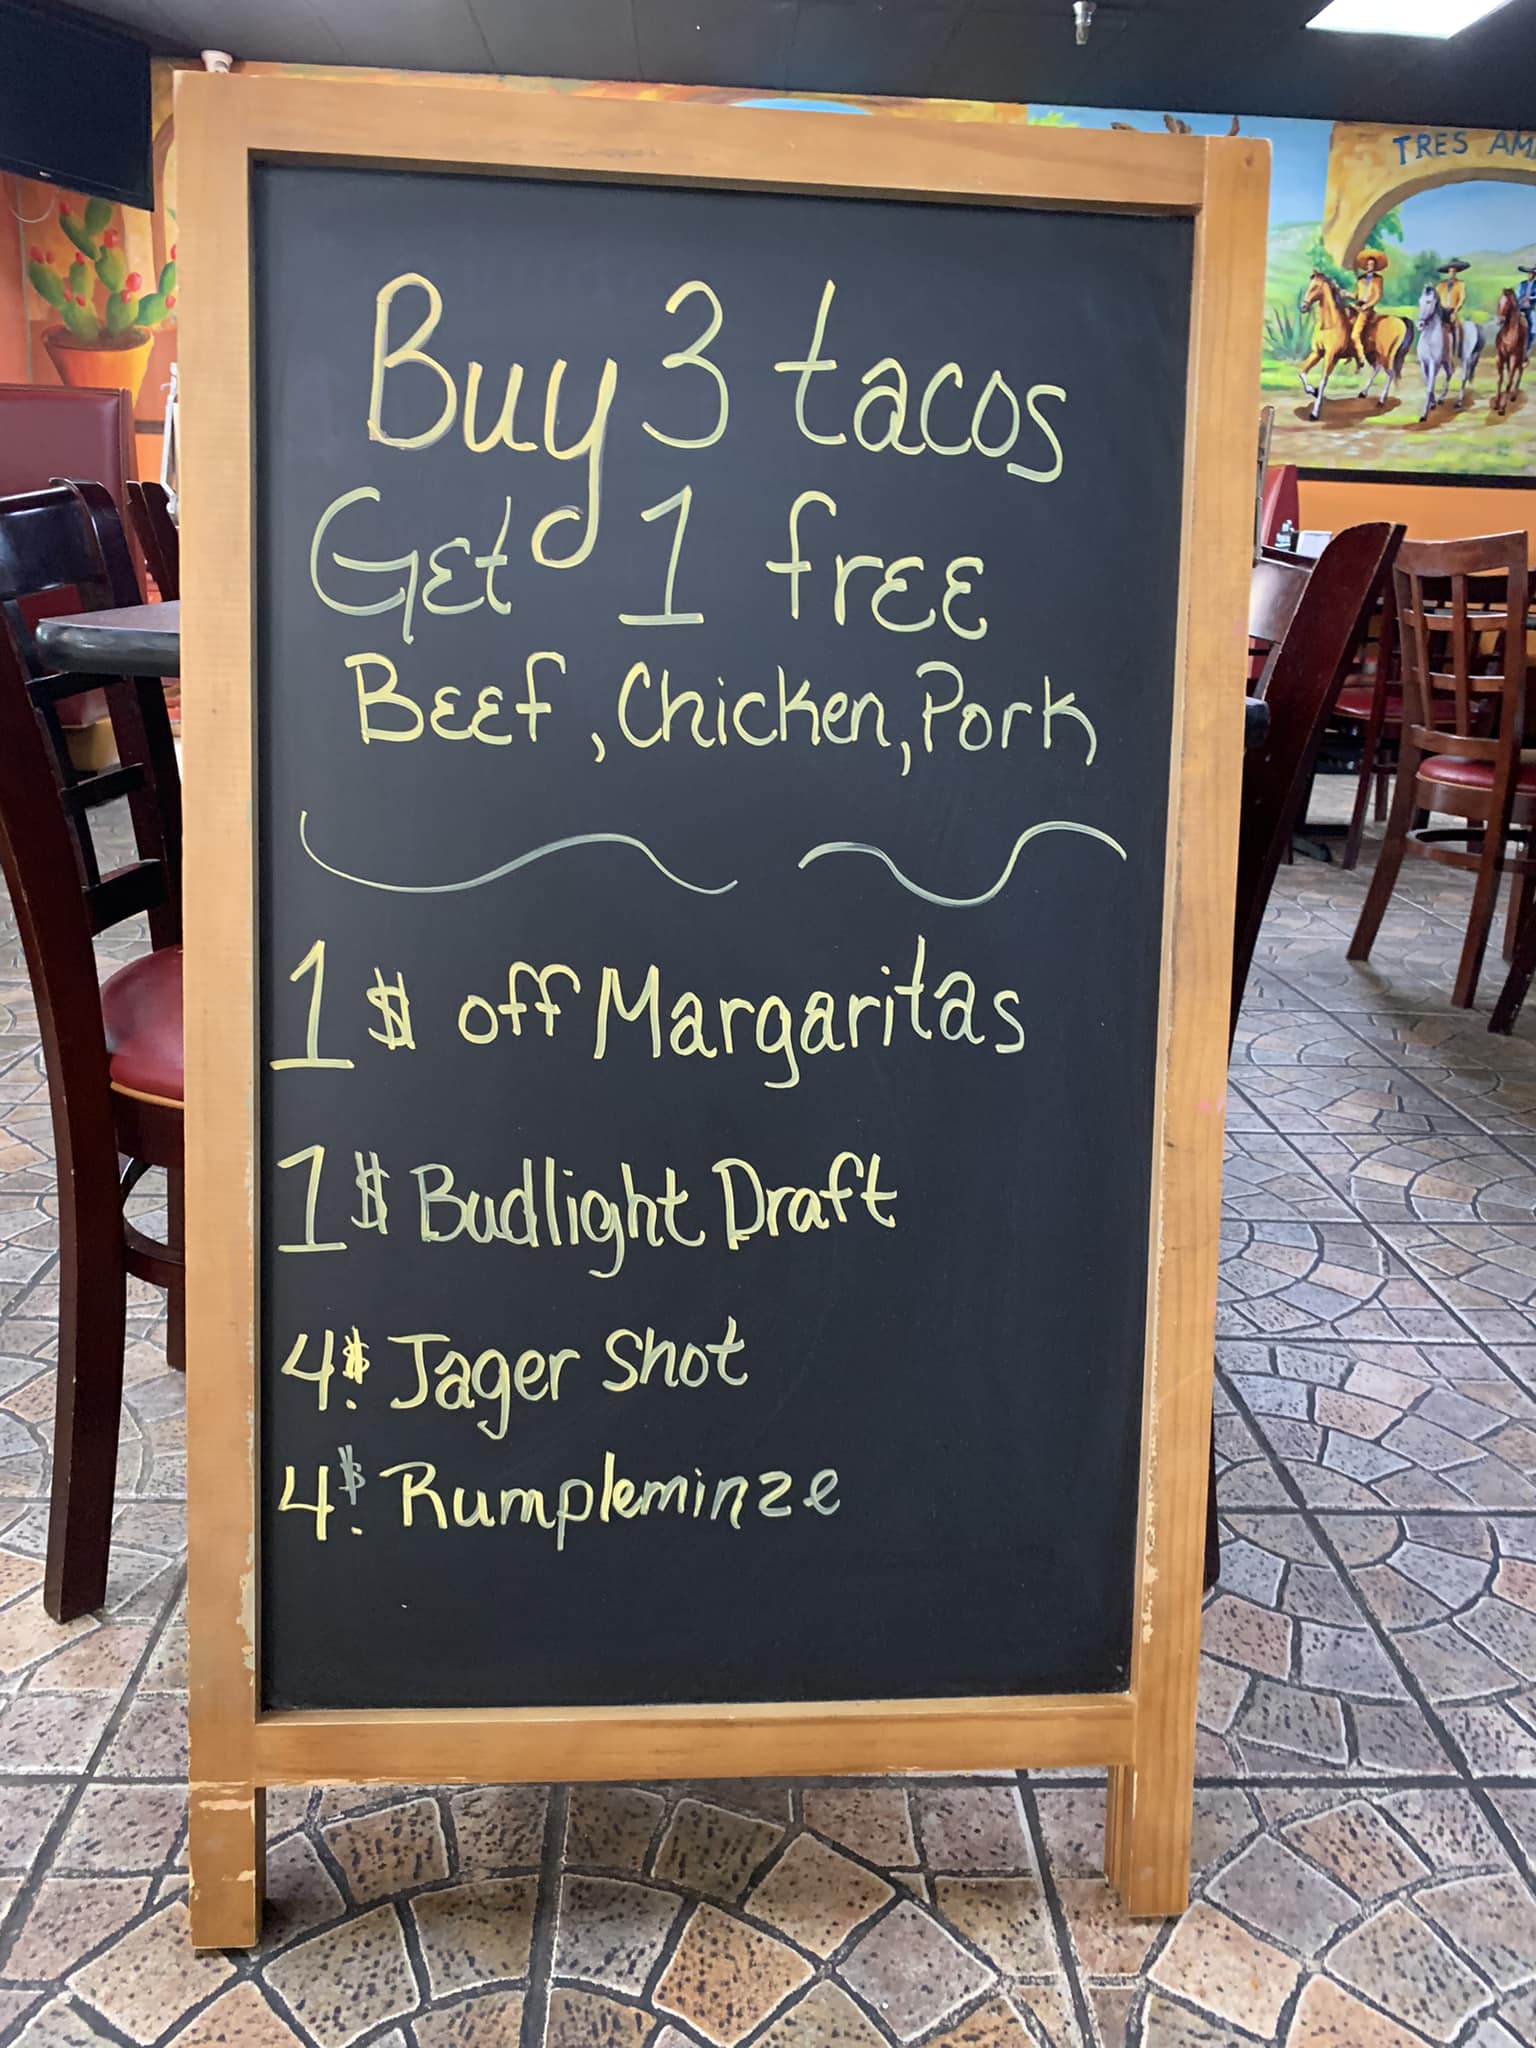 TRES AM
Buy 3 tacos
Get 1 free
Beef, Chicken, Pork
1$ off Margaritas
1$ Budlight Draft
4.$ Jager Shot
4.$ Rumpleminze